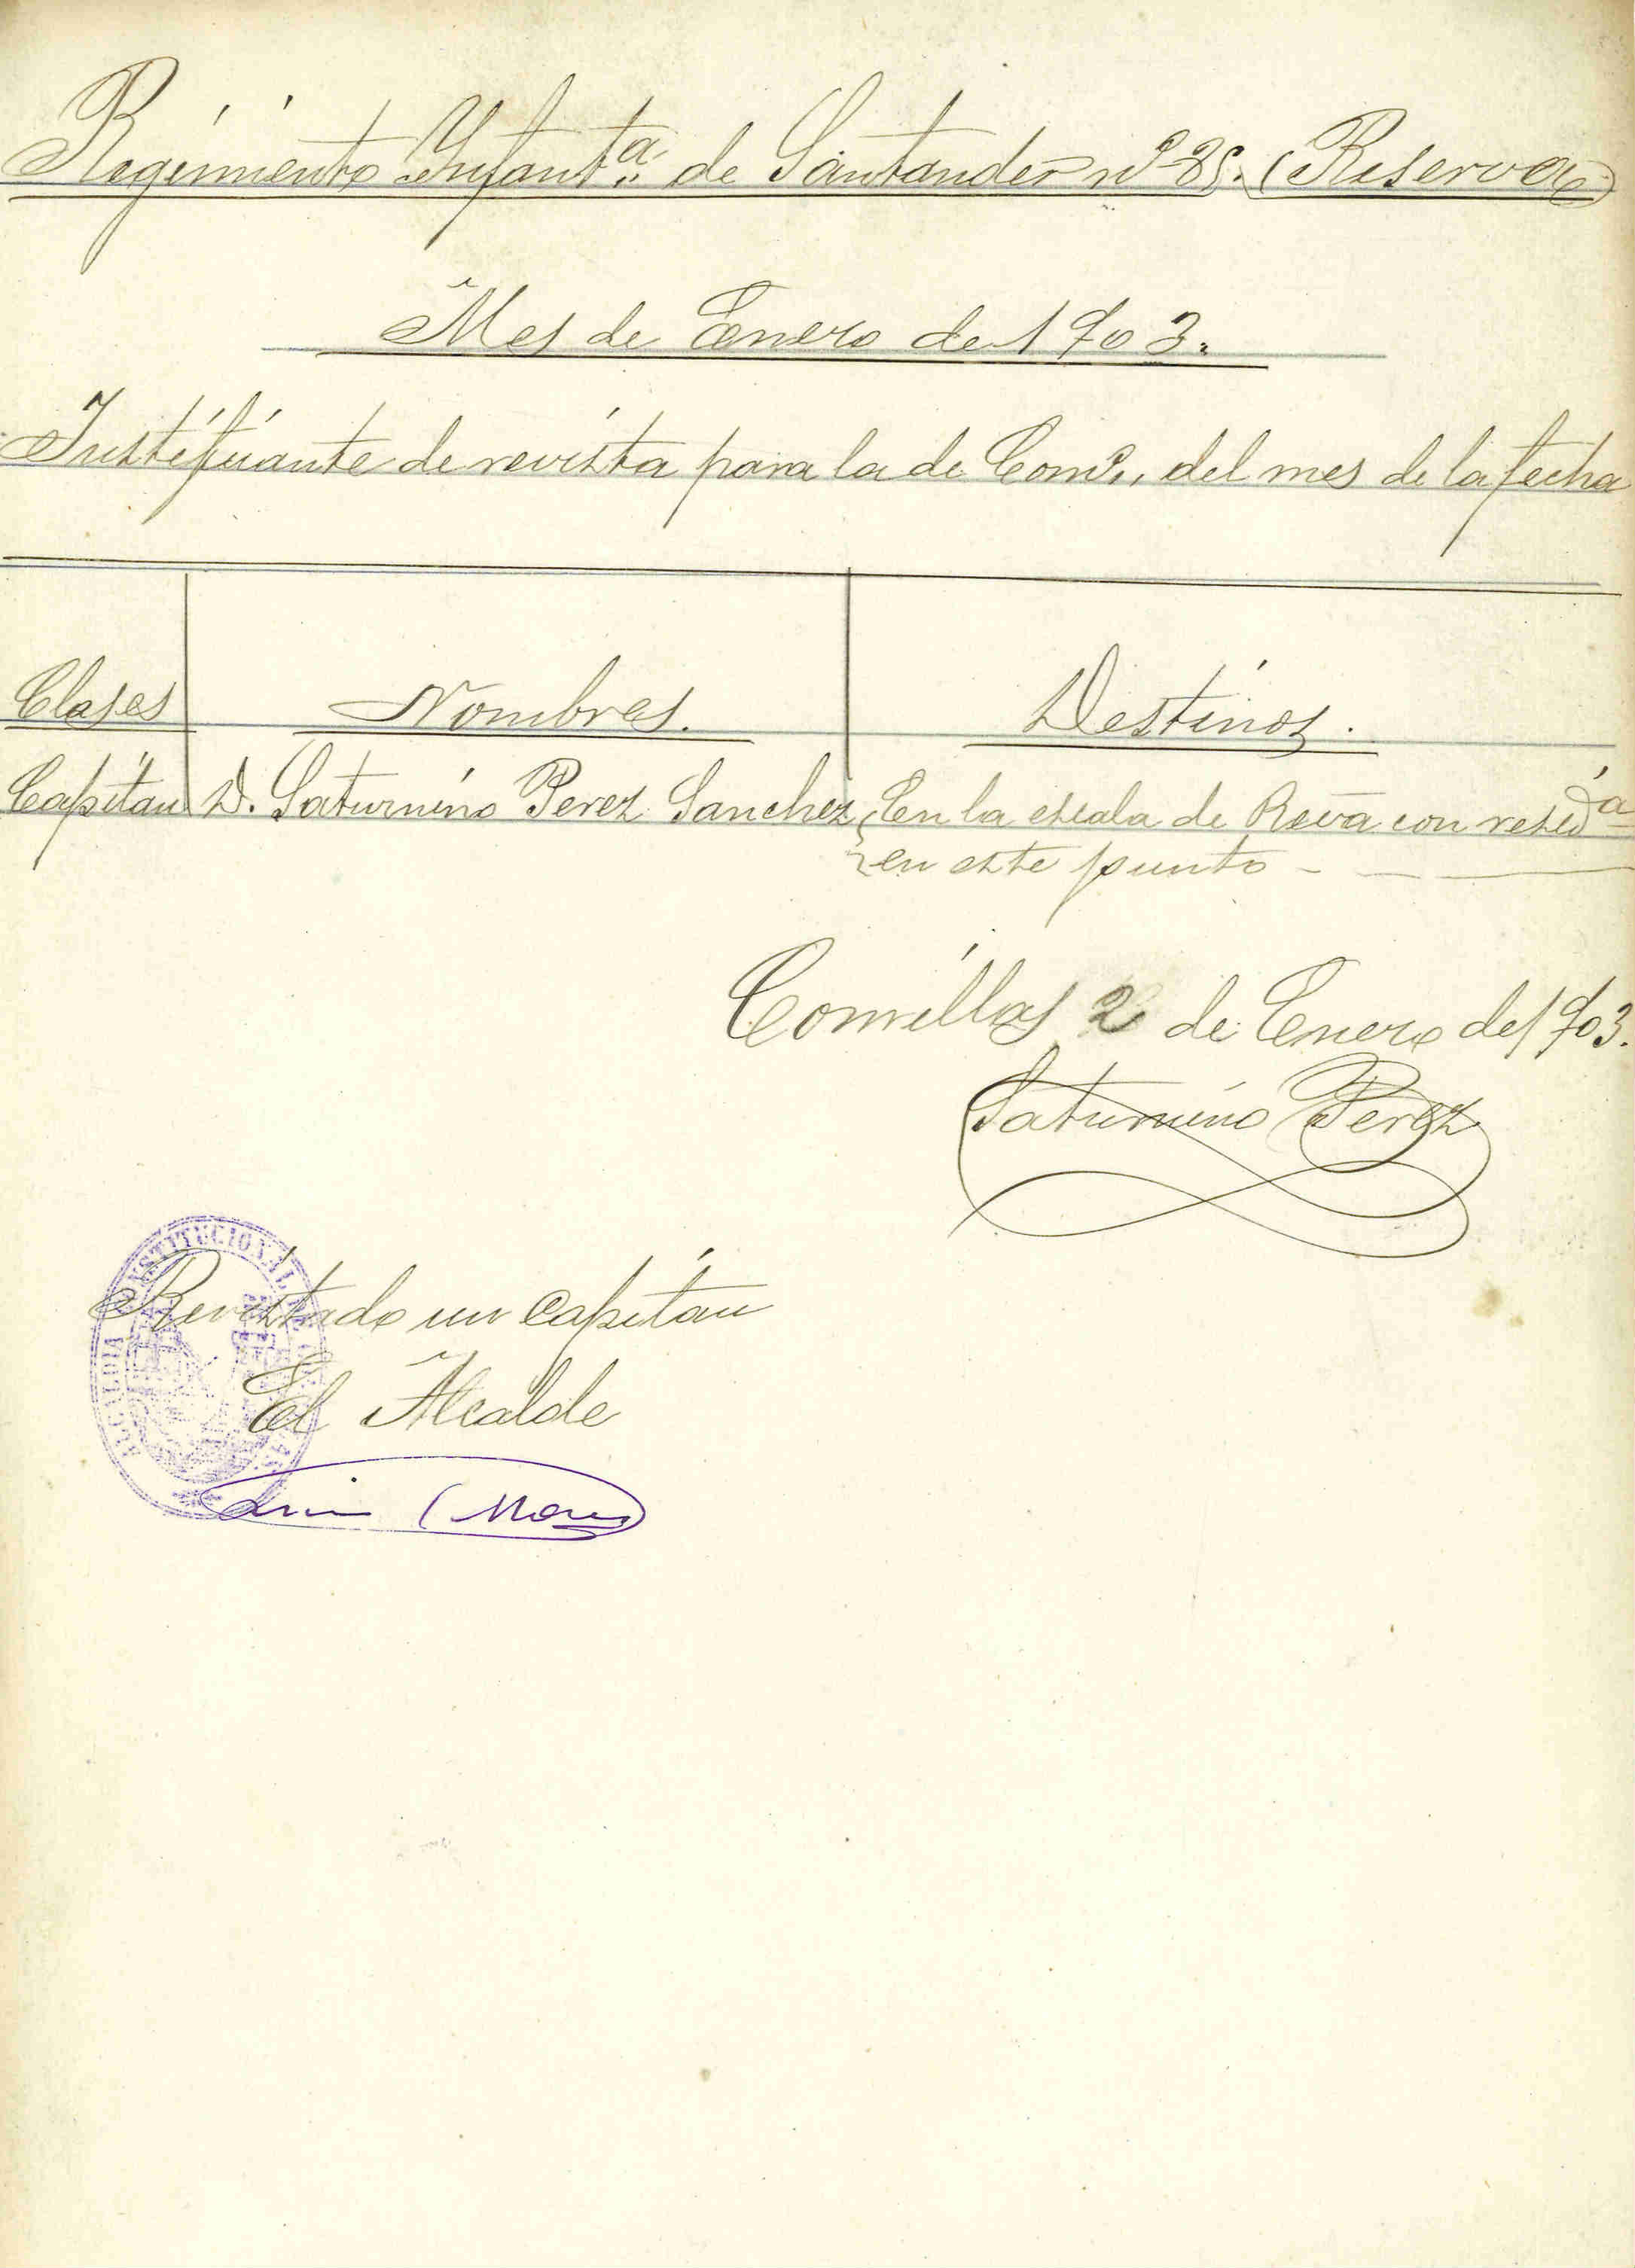 Regimiento Infantª de Santander nº 85. (Reserva)
Mes de Enero de 1903.
Justificante de revista para la de Comº, del mes de la fecha
Clases Nombres. Destinos.
Capitan D. Saturnino Perez Sanchez En la escala de Rvª con residª
en este punto
Comillas 2 de Enero de 1903.
Saturnino Perez
ALCALDIA CONSTITUCIONAL
Revistado un capitan
El Alcalde